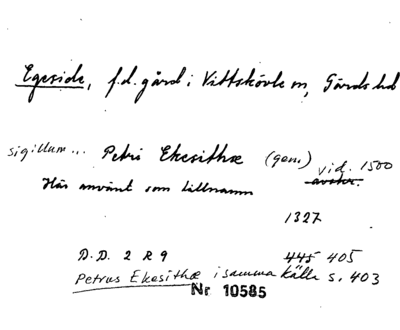 Egeside, f.d. gård i Vittskövle sn, Gärds hd
sigillum... Petri Ekesithæ (gen.) vid. 1500
avskr.
Här använt som tillnamn
1327
D.D. 2 R 9 445 405
Petrus Ekesithæ i samma källa s. 403
Nr 10585